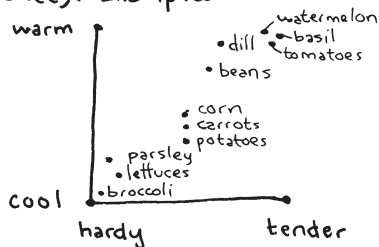 warm
watermelon
dill
basil
tomatoes
beans
corn
carrots
potatoes
parsley
lettuces
broccoli
cool
hardy
tender